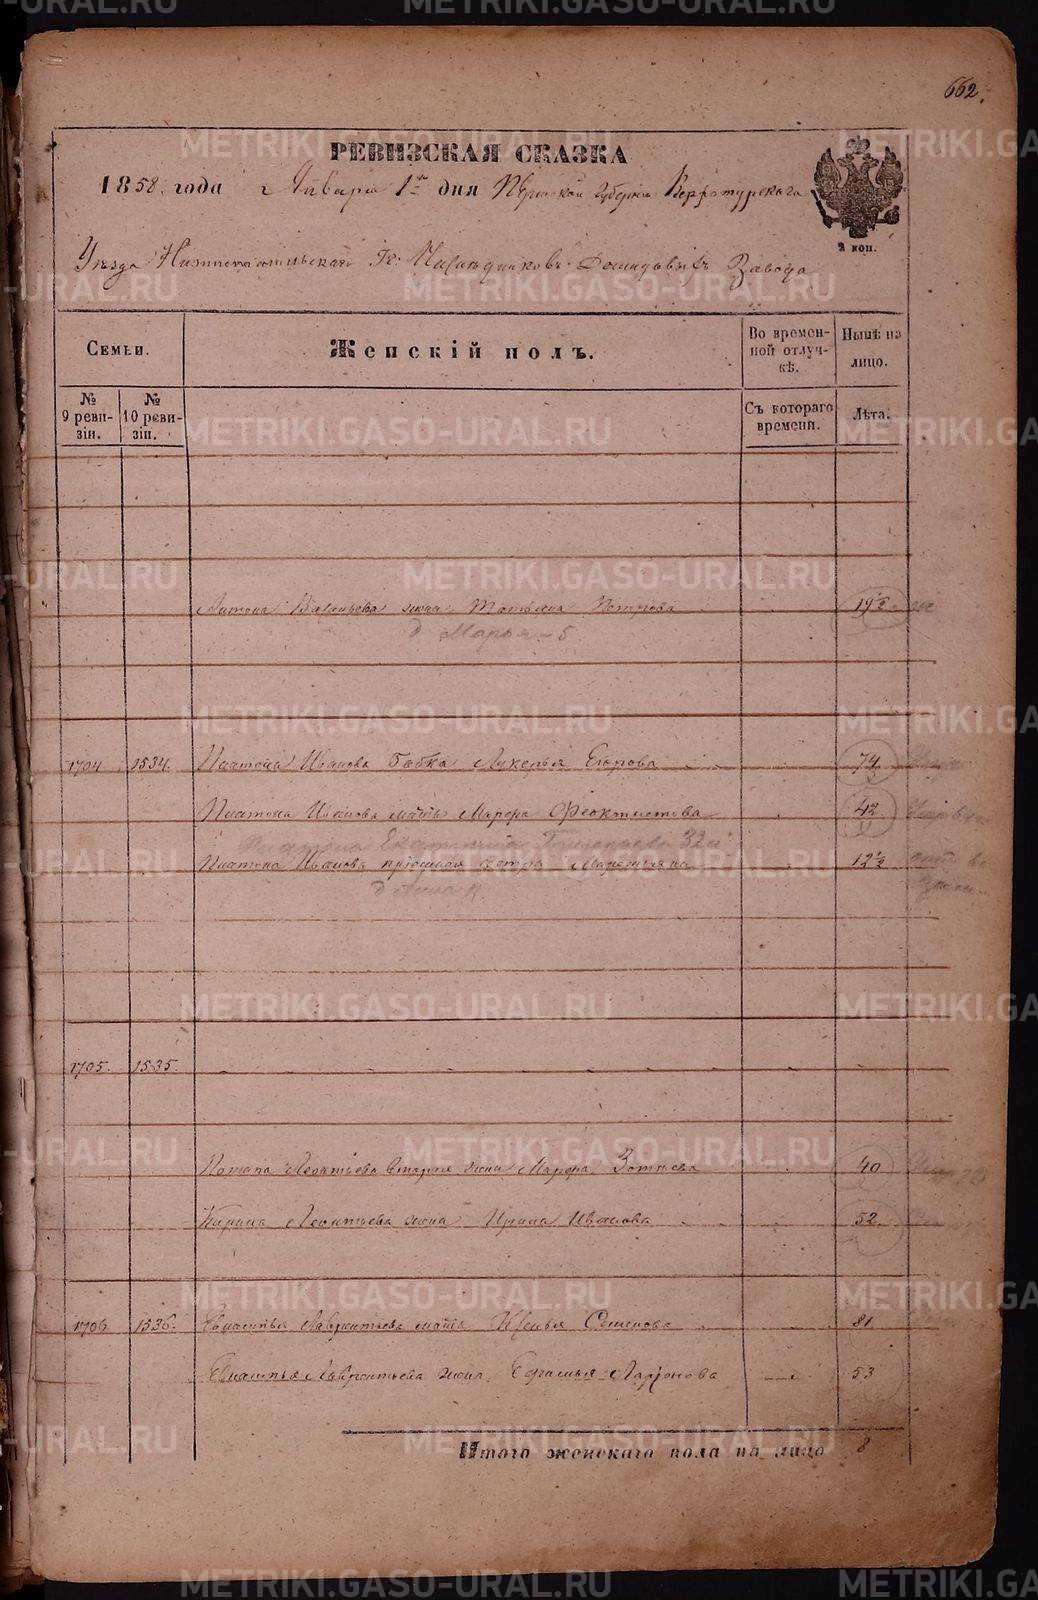 662.
РЕВИЗСКАЯ СКАЗКА
1858 года Января 1го дня Пермской Губернии Верхотурскаго
Уѣзда Нижнетагильскаго Гг. Наслѣдниковъ Демидовыхъ Завода
2 коп.
Семьи.
Женскій полъ.
Во времен-
ной отлуч-
кѣ.
Нынѣ на
лицо.
№
9 реви-
зіи.
№
10 реви-
зіи.
Съ котораго
времени.
Лѣта.
Антона Васильева жена Татьяна Петрова 19½
д Марья - 5
1704 1534. Платона Иванова бабка Лукерья Егорова 74
Платона Иванова мать Марфа Феоктистова 42
Платона Екатерина 32
Платона Иванова сестра 12½
д Анна
1705. 1535.
Потапа Леонтьева вторая жена Марфа Зотеева 40
Кирила Леонтьева жена Ирина Иванова 52
1706 1536. Евпатья Лаврентьева мать Ксенья Семенова 81
Евпатья Лаврентьева жена Ларионова 53
Итого женскаго пола на лицо 8
METRIKI.GASO-URAL.RU